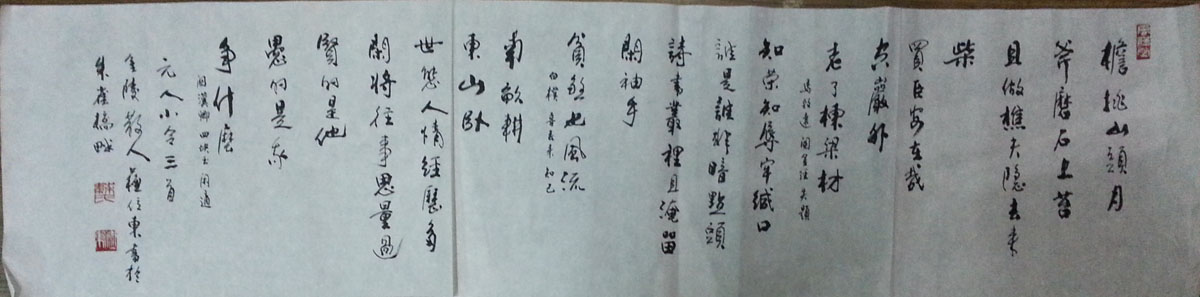 檐挑山頭月
斧磨石上苔
且做樵夫隐去来
柴
買臣安在哉
空巖外
老了棟梁材
馬致遠 閱金經 失題
知荣知辱牢緘口
誰是誰非暗點頭
詩書叢裡且淹留
閑袖手
貧煞也風流
白樸 喜春来 知己
南畝耕
東山臥
世態人情經歷多
閑將往事思量過
賢的是他
愚的是我
争什麽
関漢卿 四块玉 閑適
元人小令三首
金陵散人
書於
朱雀橋畔